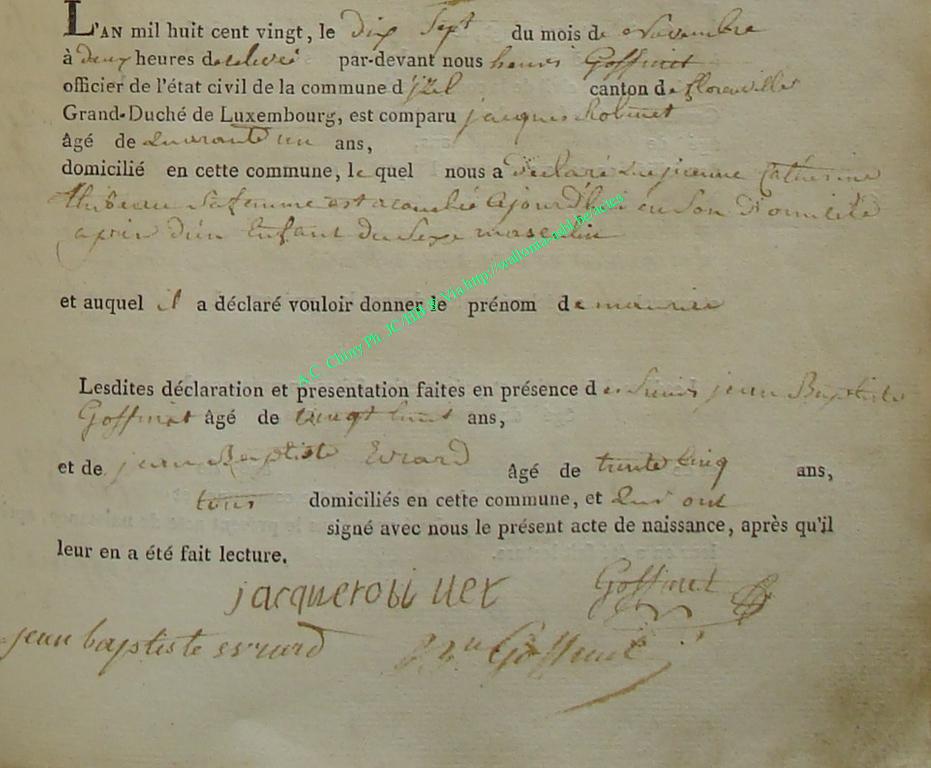 L'AN mil huit cent vingt, le dix Sept du mois de Novembre
à deux heures de relevée par-devant nous henri Goffinet
officier de l'état civil de la commune d'jzel canton de florenville
Grand-Duché de Luxembourg, est comparu jacques Robinet
âgé de Quarante un ans,
domicilié en cette commune, le quel nous a declaré que jeanne Catherine
Thibeau Sa femme est acouchée ajourd'hui en Son Domicile
d'un Enfant du Sexe masculin
et auquel il a déclaré vouloir donner le prénom de maurice
Lesdites déclaration et presentation faites en présence de jean Baptiste
Goffinet âgé de vingt huit ans,
et de jean Baptiste Evrard âgé de trente Cinq ans,
tous domiciliés en cette commune, et Qui ont
signé avec nous le présent acte de naissance, après qu'il
leur en a été fait lecture.
jacque robinet Goffinet
jean baptiste evrard Goffinet
A.C Chiny Ph JC/HB & Via http://wallonia-asbl.be/actes